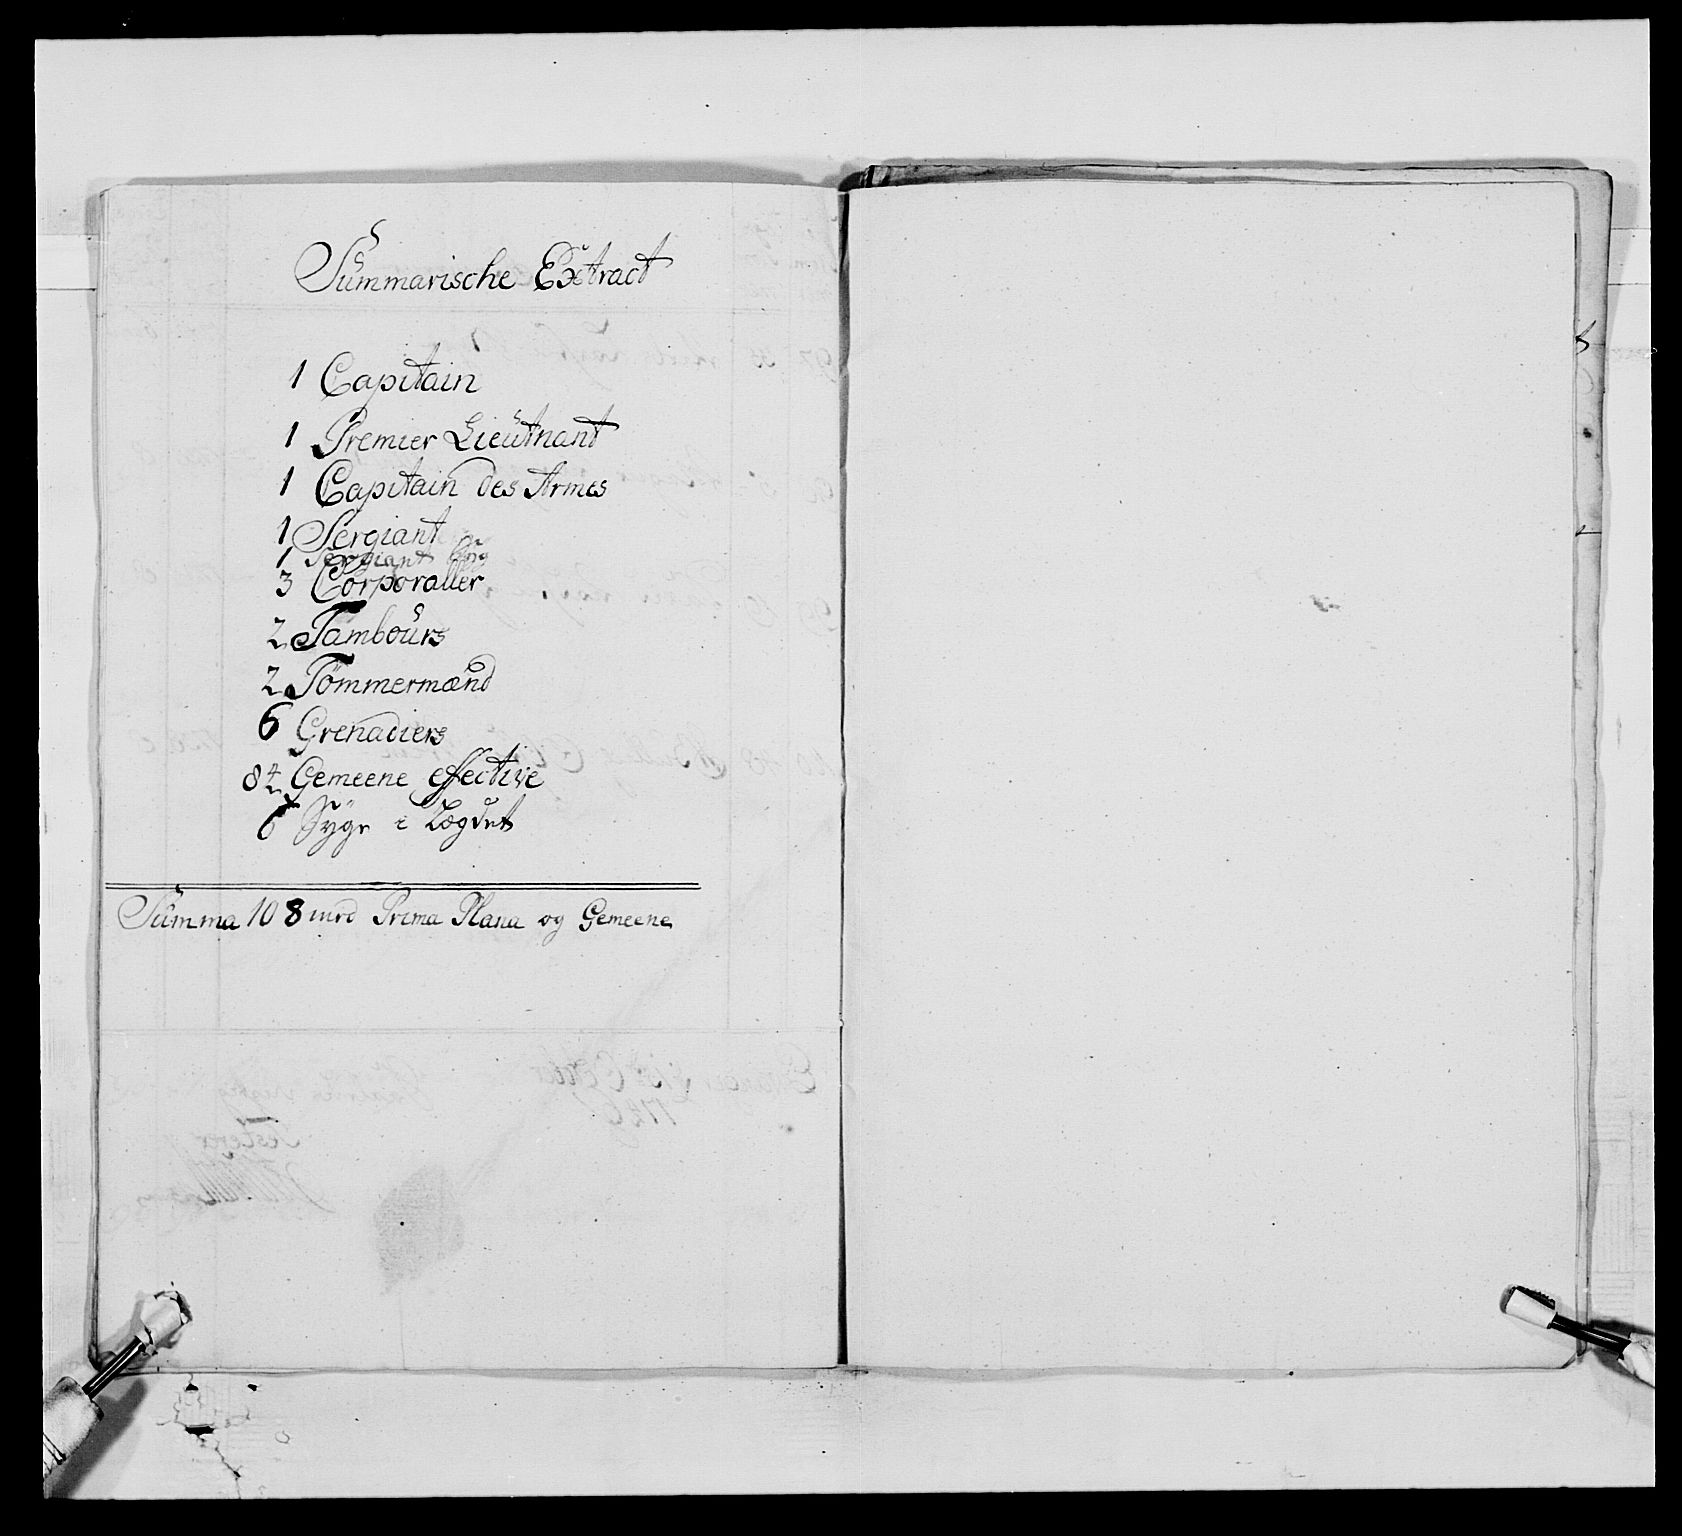 Summarische Extract
1 Capitain
1 Premier Lieutnant
1 Capitain des Armes
1 Sergiant
1 Sergiant syg
3 Corporaller
2 Tambours
2 Tömmermænd
6 Grenadiers
84 Gemeene effective
6 Syge i Lægdet
Summa 108 med Prima Plana og Gemeene